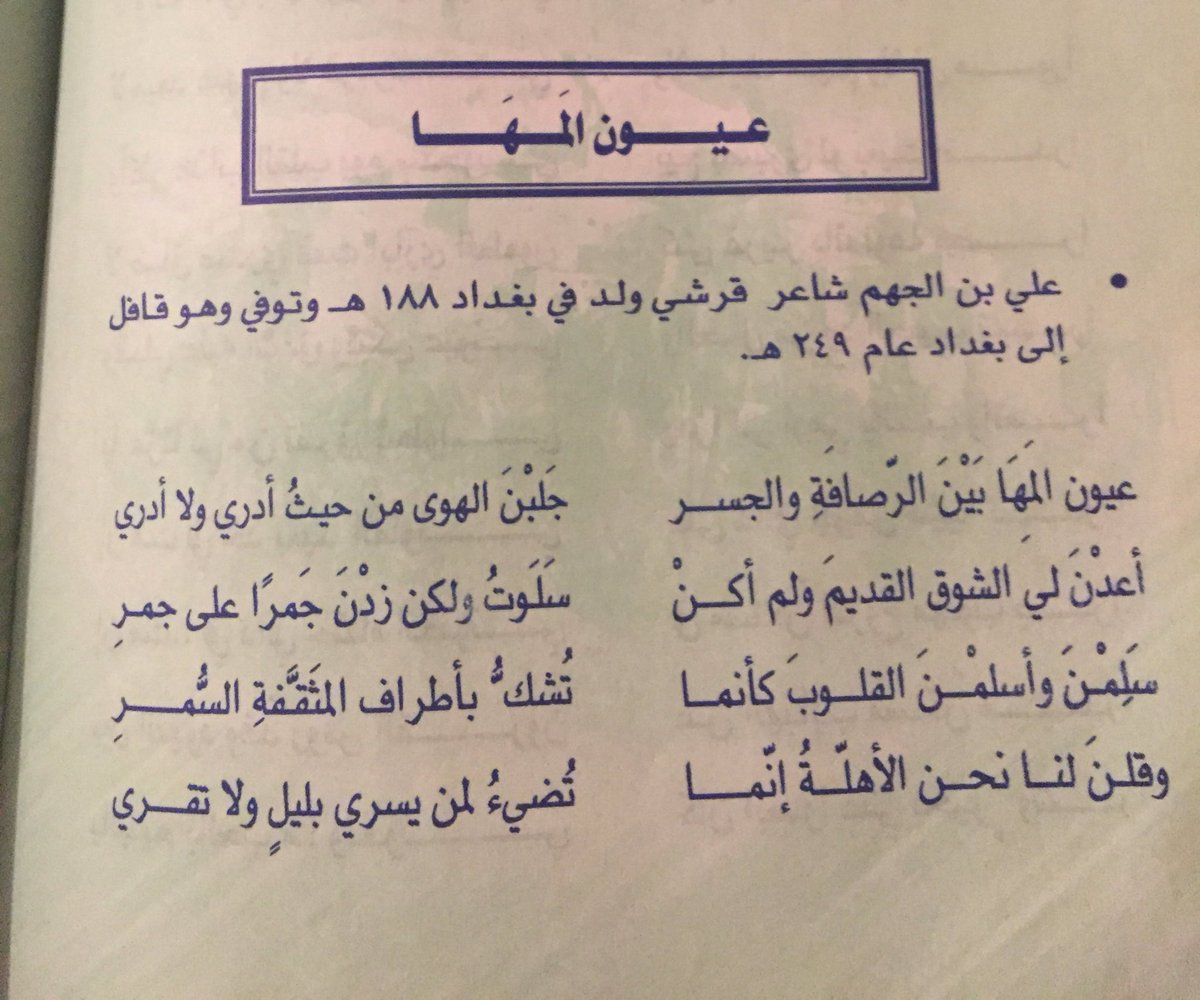 عيون المَهَا
• علي بن الجهم شاعر قرشي ولد في بغداد ١٨٨ هـ وتوفي وهو قافل
إلى بغداد عام ٢٤٩ هـ.
عيون المَهَا بَيْنَ الرّصافَةِ والجسر جَلَبْنَ الهوى من حيثُ أدري ولا أدري
أعدْنَ لي الشوق القديمَ ولم أكنْ سَلَوتُ ولكن زدْنَ جَمرًا على جمرِ
سَلِمْنَ وأسلمْنَ القلوبَ كأنما تُشكُّ بأطراف المثَقَّفةِ السُّمرِ
وقلنَ لنا نحن الأهلّةُ إنّما تُضيءُ لمن يسري بليلٍ ولا تقري